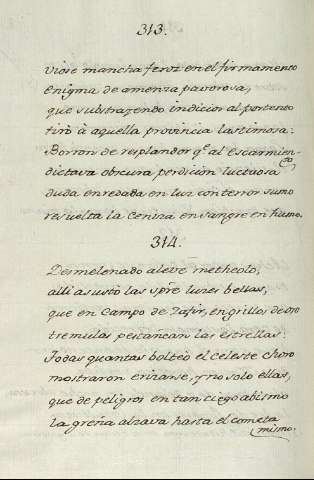 313.
Viose mancha feroz en el firmamento
Enigma de amenza pavorosa,
que substrayendo indicios al portento
tirò à aquella provincia lastimosa:
Borron de resplandor q.e al escarmien-
to,
dictava obscura perdicion luctuosa
duda enredada en luz con terror sumo
resuelta la Ceniza en sangre en humo.
314.
Desmelenado aleve metheolo,
alli asustò las spre luzes bellas,
que en Campo de Zafir, en grillos de oro
tremulas pestañean las estrellas:
Todas quantas bolteò el Celeste Choro
mostraron erizarse, y no solo ellas,
que de peligros en tan ciego abismo
la greña alzava hasta el cometa
mismo.